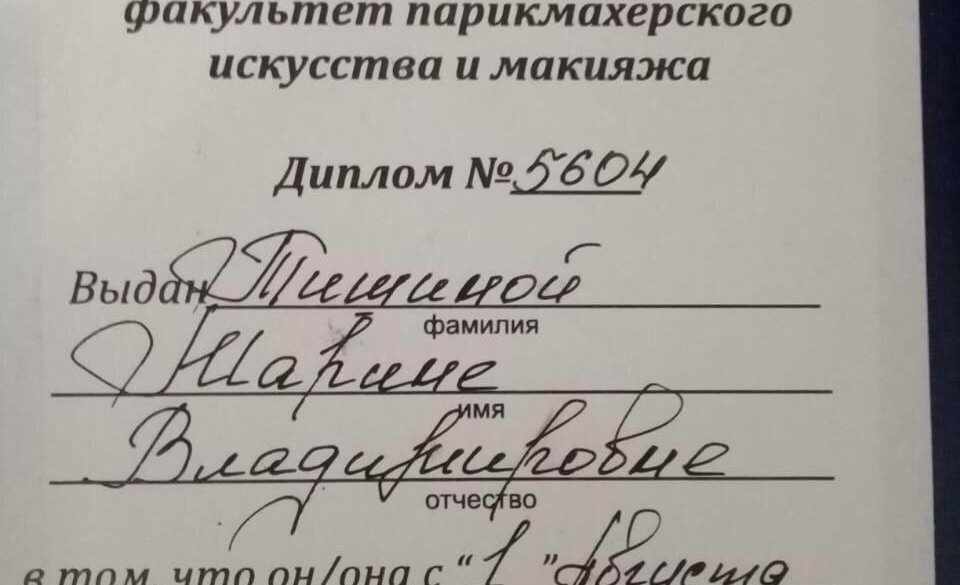 факультет парикмахерского
искусства и макияжа
Диплом № 5604
Выдан Тишиной
фамилия
Марине
имя
Владимировне
отчество
в том, что он/она с "1" Августа